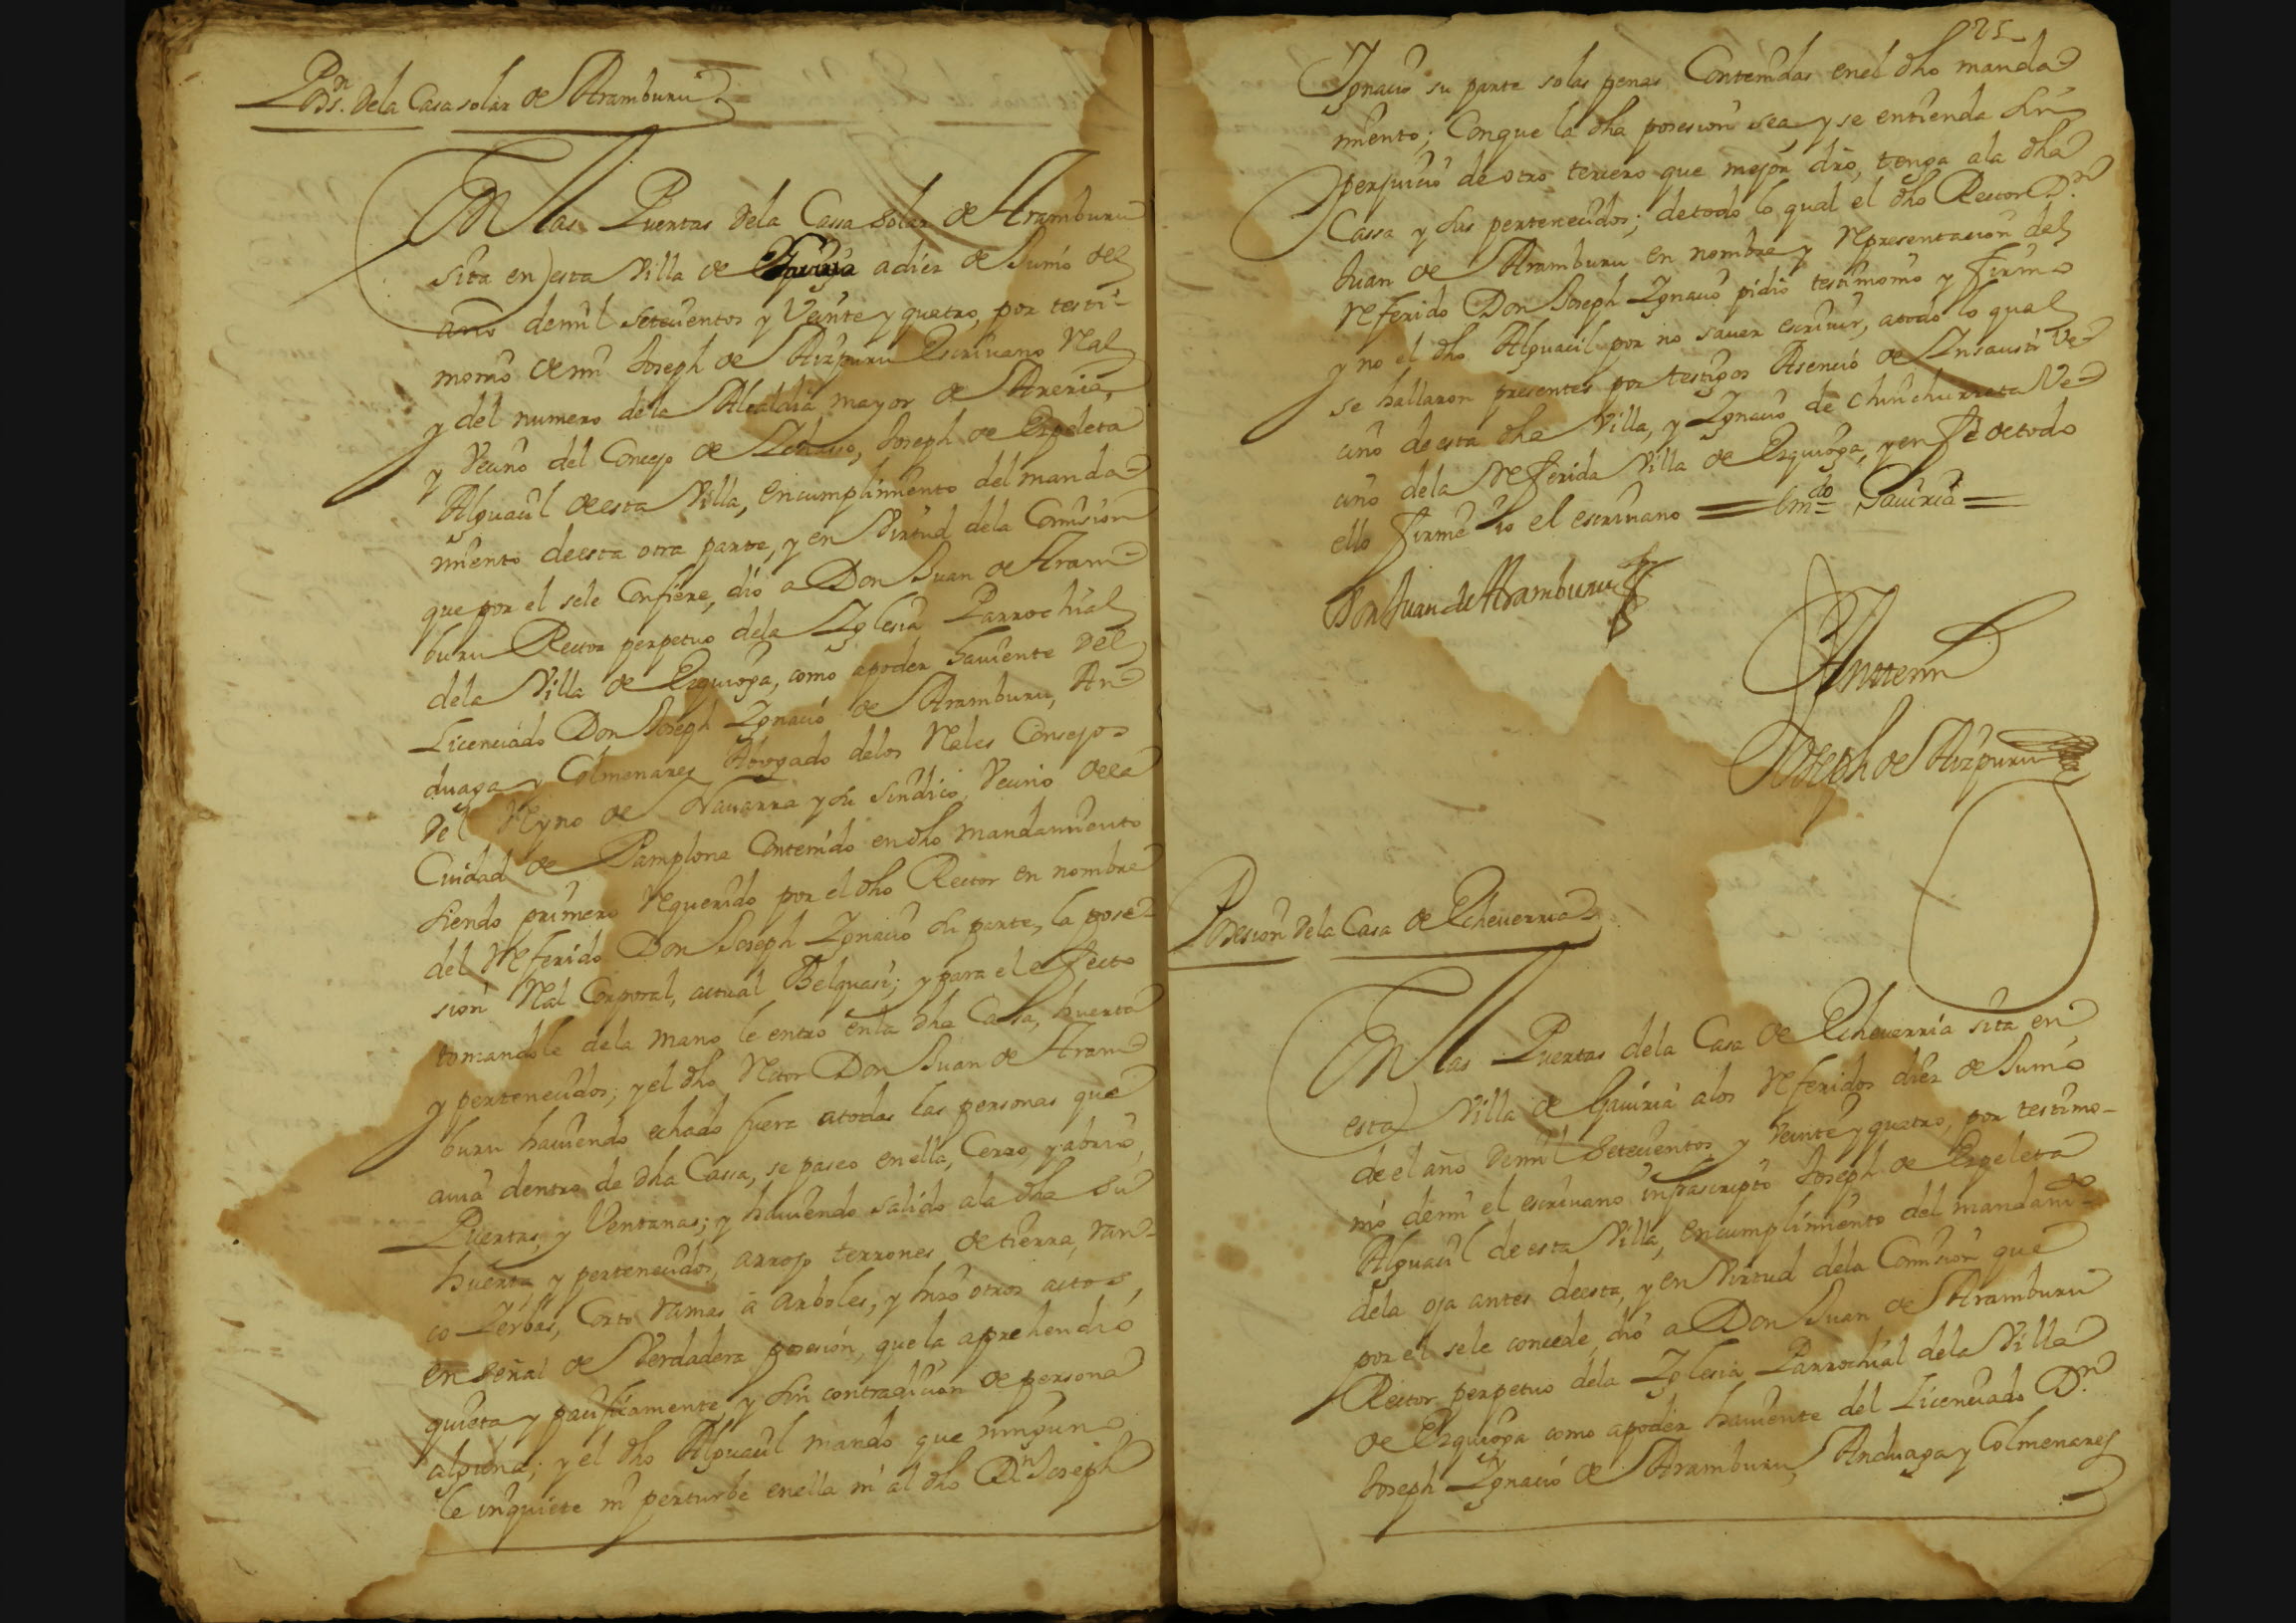 Pos.on dela Casa solar de Aramburu
En las Puertas dela Cassa Solar de Aramburu
sita en esta Villa de Gaviria a diez de Junio del
año de mil Setecientos y Veinte y quatro, por testi-
monio de mi Joseph de Aizpuru Escrivano Real
y del numero de la Alcaldia mayor de Areria,
y Vecino del Concejo de Ichasso, Joseph de Ezpeleta
Alguacil de esta Villa, en cumplimiento del manda-
miento de esta otra parte, y en Virtud dela Comision
que por el se le Confiere, dio a Don Juan de Aram-
buru Rector perpetuo dela Iglesia Parrochial
dela Villa de Ezquioga, como apoder haviente del
Licenciado Don Joseph Ignacio de Aramburu, An-
duaga y Colmenares Abogado delos Reales Consejos
del Reyno de Navarra y su sindico, Vecino de la
Ciudad de Pamplona Contenido en dho mandamiento
siendo primero Requerido por el dho Rector en nombre
del Referido Don Joseph Ignacio su parte, la pose-
sion Real Corporal, actual Belquasi; y para el efecto
tomandole dela mano le entro en la dha Cassa, huerta
y pertenecidos; y el dho Retor Don Juan de Aram-
buru haviendo echado fuera a todas las personas que
avia dentro de dha Cassa, se paseo en ella, Cerro, y abrio,
Puertas, y Ventanas; y haviendo salido a la dha su
huerta, y pertenecidos, arrojo terrones de tierra, ran-
co Zerbas, Corto ramas a arboles, y hizo otros actos,
en señal de Verdadera posesion, que la aprehendio
quieta y pacificamente, y sin contradicion de persona
alguna; y el dho Alguacil mando que ninguno
le inquiete ni perturbe en ella ni al dho D.n Joseph
25
Ignacio su parte solas penas Contenidas en el dho manda-
miento; Conque la dha posesion sea, y se entienda sin
perjuicio de otro tercero que mejor dro, tenga a la dha
Cassa y sus pertenecidos; de todo lo qual el dho Rector D.n
Juan de Aramburu en nombre y Representacion del
Referido Don Joseph Ignacio pidio testimonio y firmo
y no el dho Alguacil por no saver escrivir, a todo lo qual
se hallaron presentes por testigos Asencio de Insausti Ve-
cino de esta dha Villa, y Ignacio de Chinchurreta Ve-
cino dela Referida Villa de Ezquioga, y en fe de todo
ello firme Yo el escrivano = Em.do Gaviria =
Don Juan de Aramburu
Ante mi
Joseph de Aizpuru
Posesion dela Casa de Echeverria
En las Puertas dela Casa de Echeverria sita en
esta Villa de Gaviria a los Referidos diez de Junio
de el año de mil Setecientos, y Veinte y quatro, por testimo-
nio de mi el escrivano infrascripto Joseph de Ezpeleta
Alguacil de esta Villa, en cumplimiento del mandami.to
dela oja antes de esta, y en Virtud dela Comision que
por el se le concede, dio a Don Juan de Aramburu
Rector perpetuo dela Iglesia Parrochial dela Villa
de Ezquioga como apoder haviente del Licenciado D.n
Joseph Ignacio de Aramburu, Anduaga y Colmenares